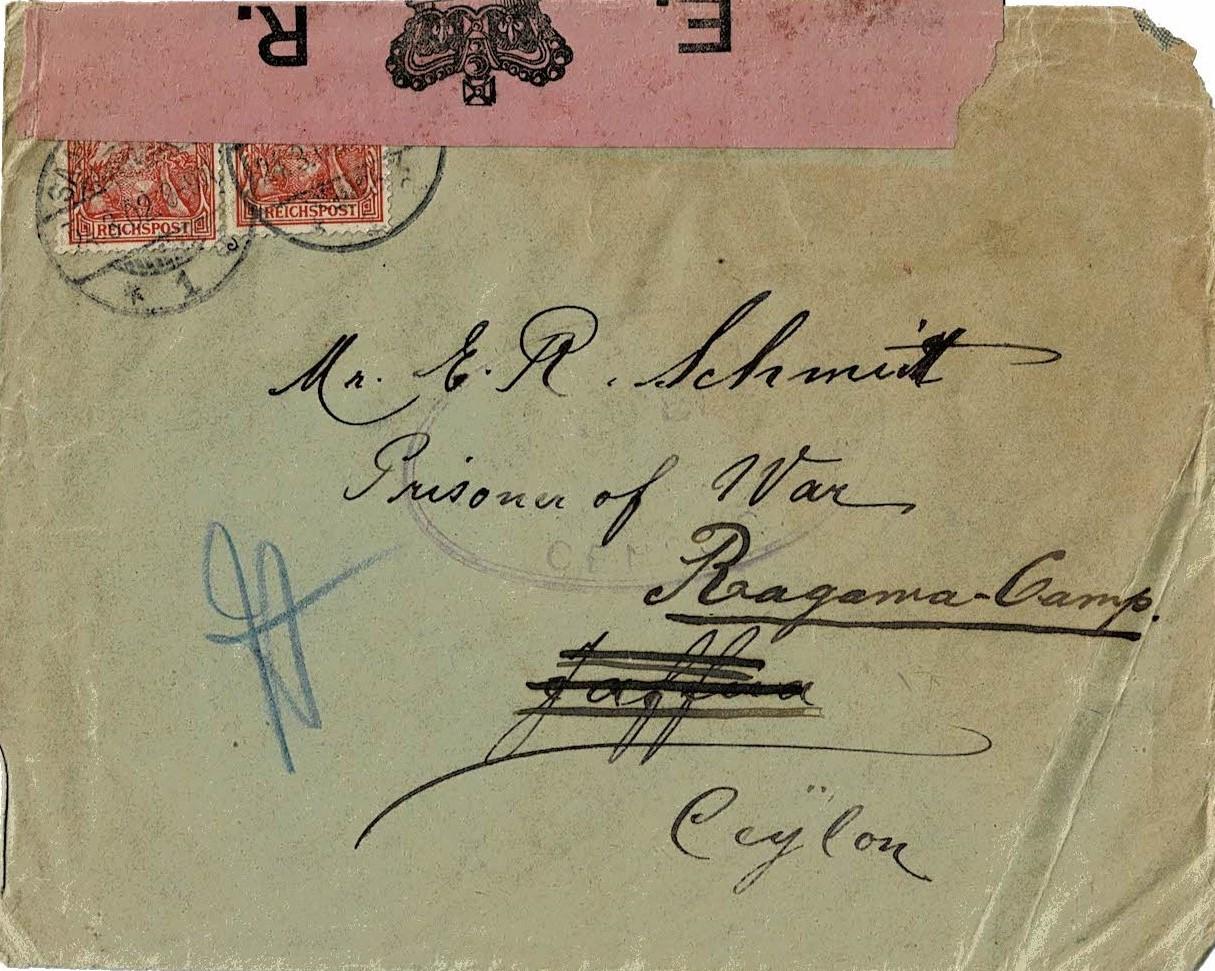 E.
R.
REICHSPOST REICHSPOST
* 1
Mr. E. R. Schmidt
Prisoner of War
CEN
Ragama-Camp.
Jaffna
Ceÿlon